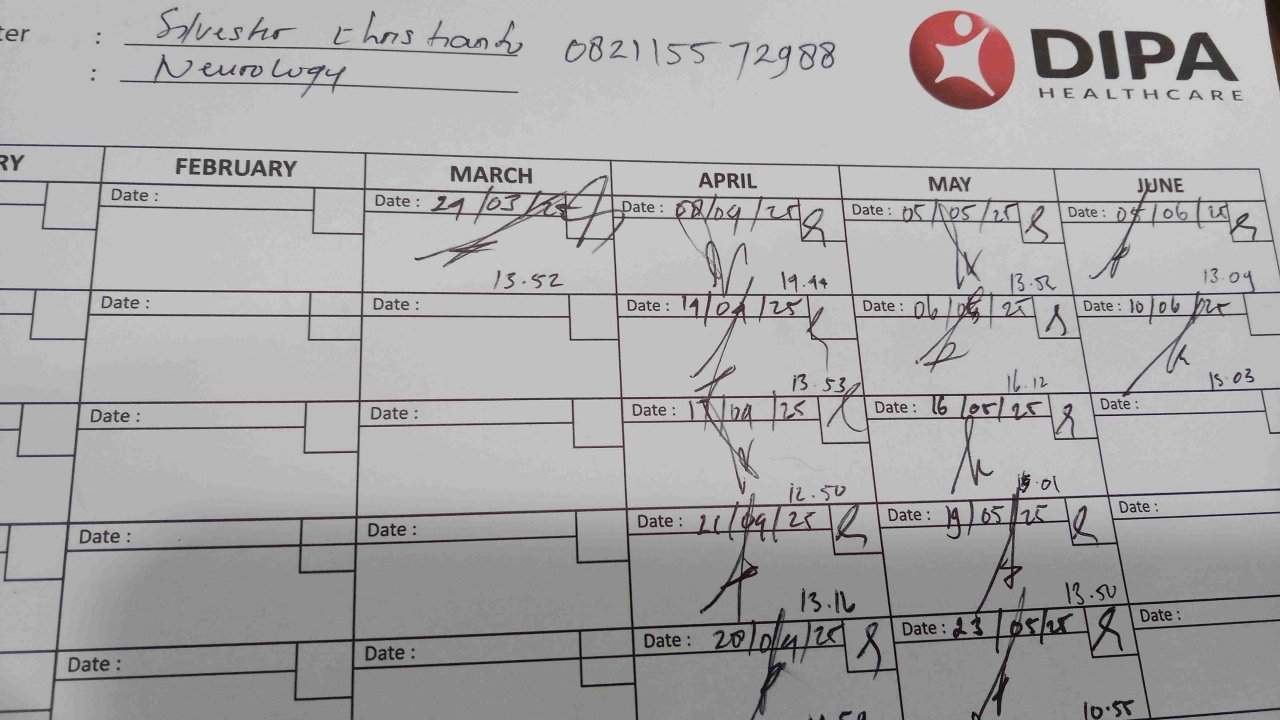 ter : Silvester Christianto 082115572988
: Neurology
DIPA
HEALTHCARE
RY FEBRUARY MARCH APRIL MAY JUNE
Date : Date : 29/03/25 Date : 08/04/25 Date : 05/05/25 Date : 05/06/25
13.52 14.44 13.52 13.09
Date : Date : Date : 14/04/25 Date : 06/05/25 Date : 10/06/25
13.53 16.12 15.03
Date : Date : Date : 17/04/25 Date : 16/05/25 Date :
12.50 15.01
Date : Date : Date : 21/04/25 Date : 19/05/25 Date :
13.16 13.50
Date : Date : Date : 28/04/25 Date : 23/05/25 Date :
10.55